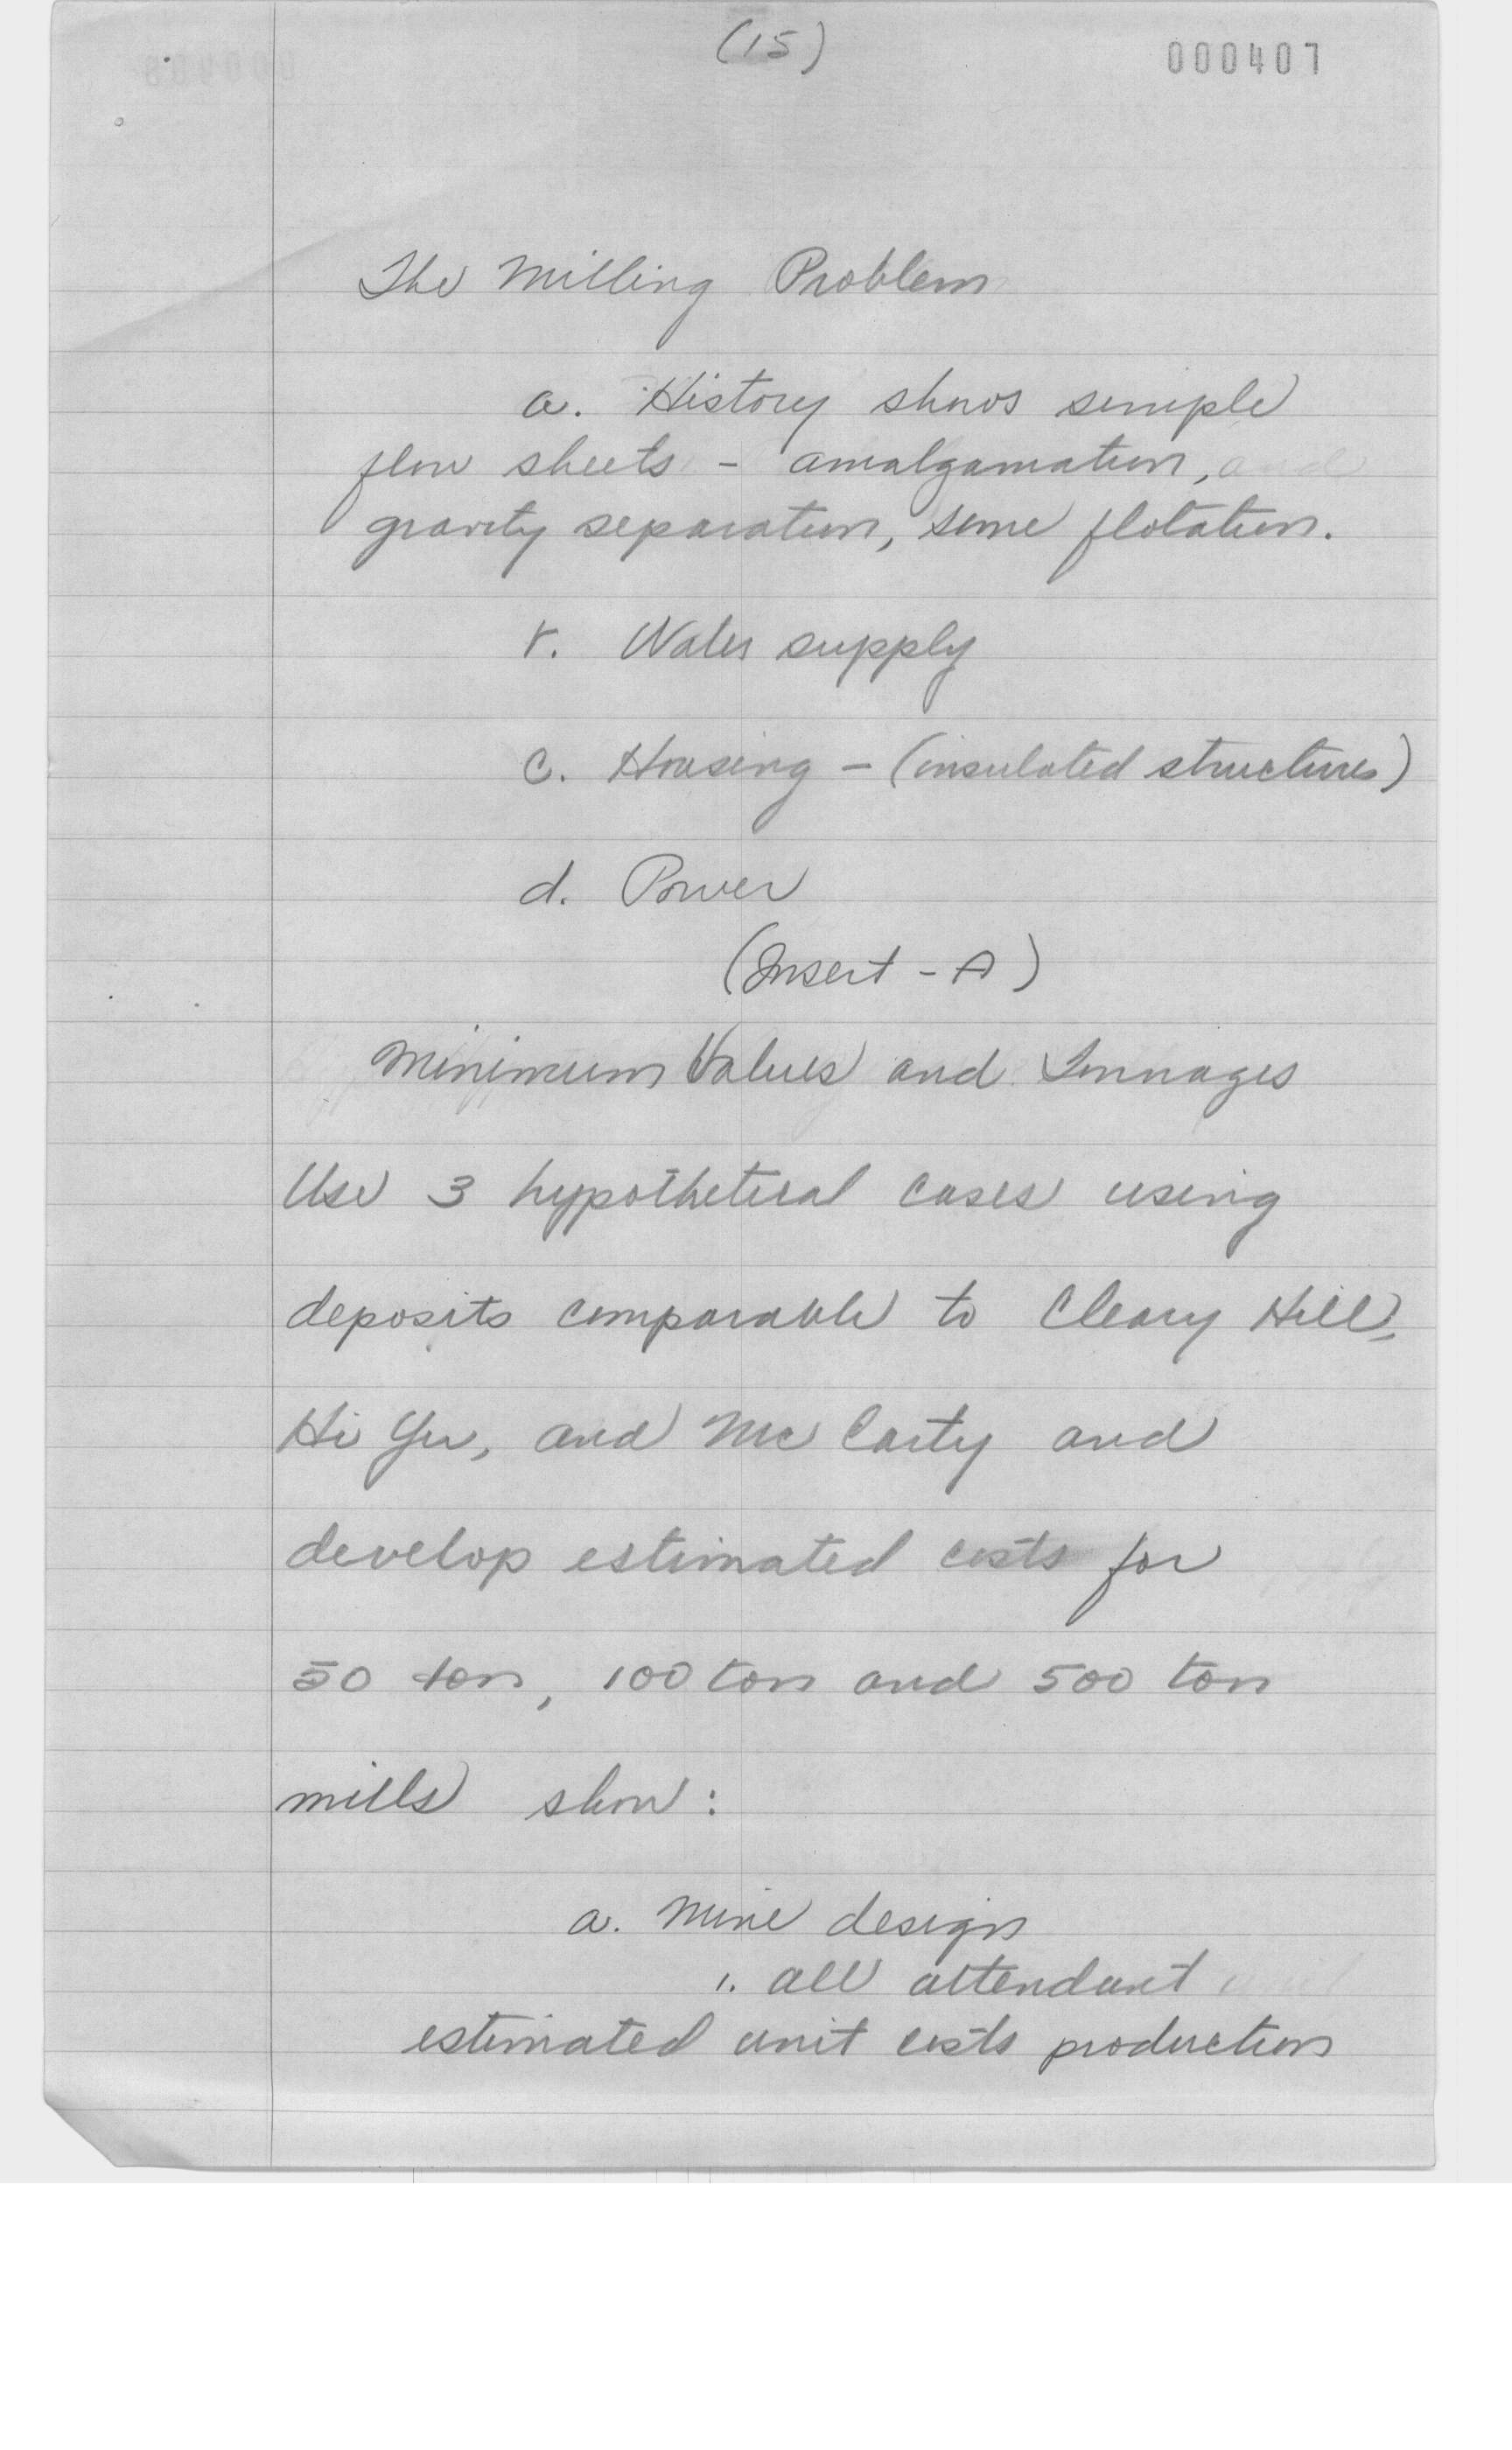 (15)
000407
The Milling Problem
a. History shows simple
flow sheets - amalgamation, and
gravity separation, some flotation.
r. Water supply
c. Housing - (insulated structures)
d. Power
(Insert - A)
Minimum Values and Tonnages
Use 3 hypothetical cases using
deposits comparable to Cleary Hill,
Hi Yu, and McCarty and
develop estimated costs for
50 ton, 100 ton and 500 ton
mills show:
a. Mine design
1. all attendant
estimated unit costs production